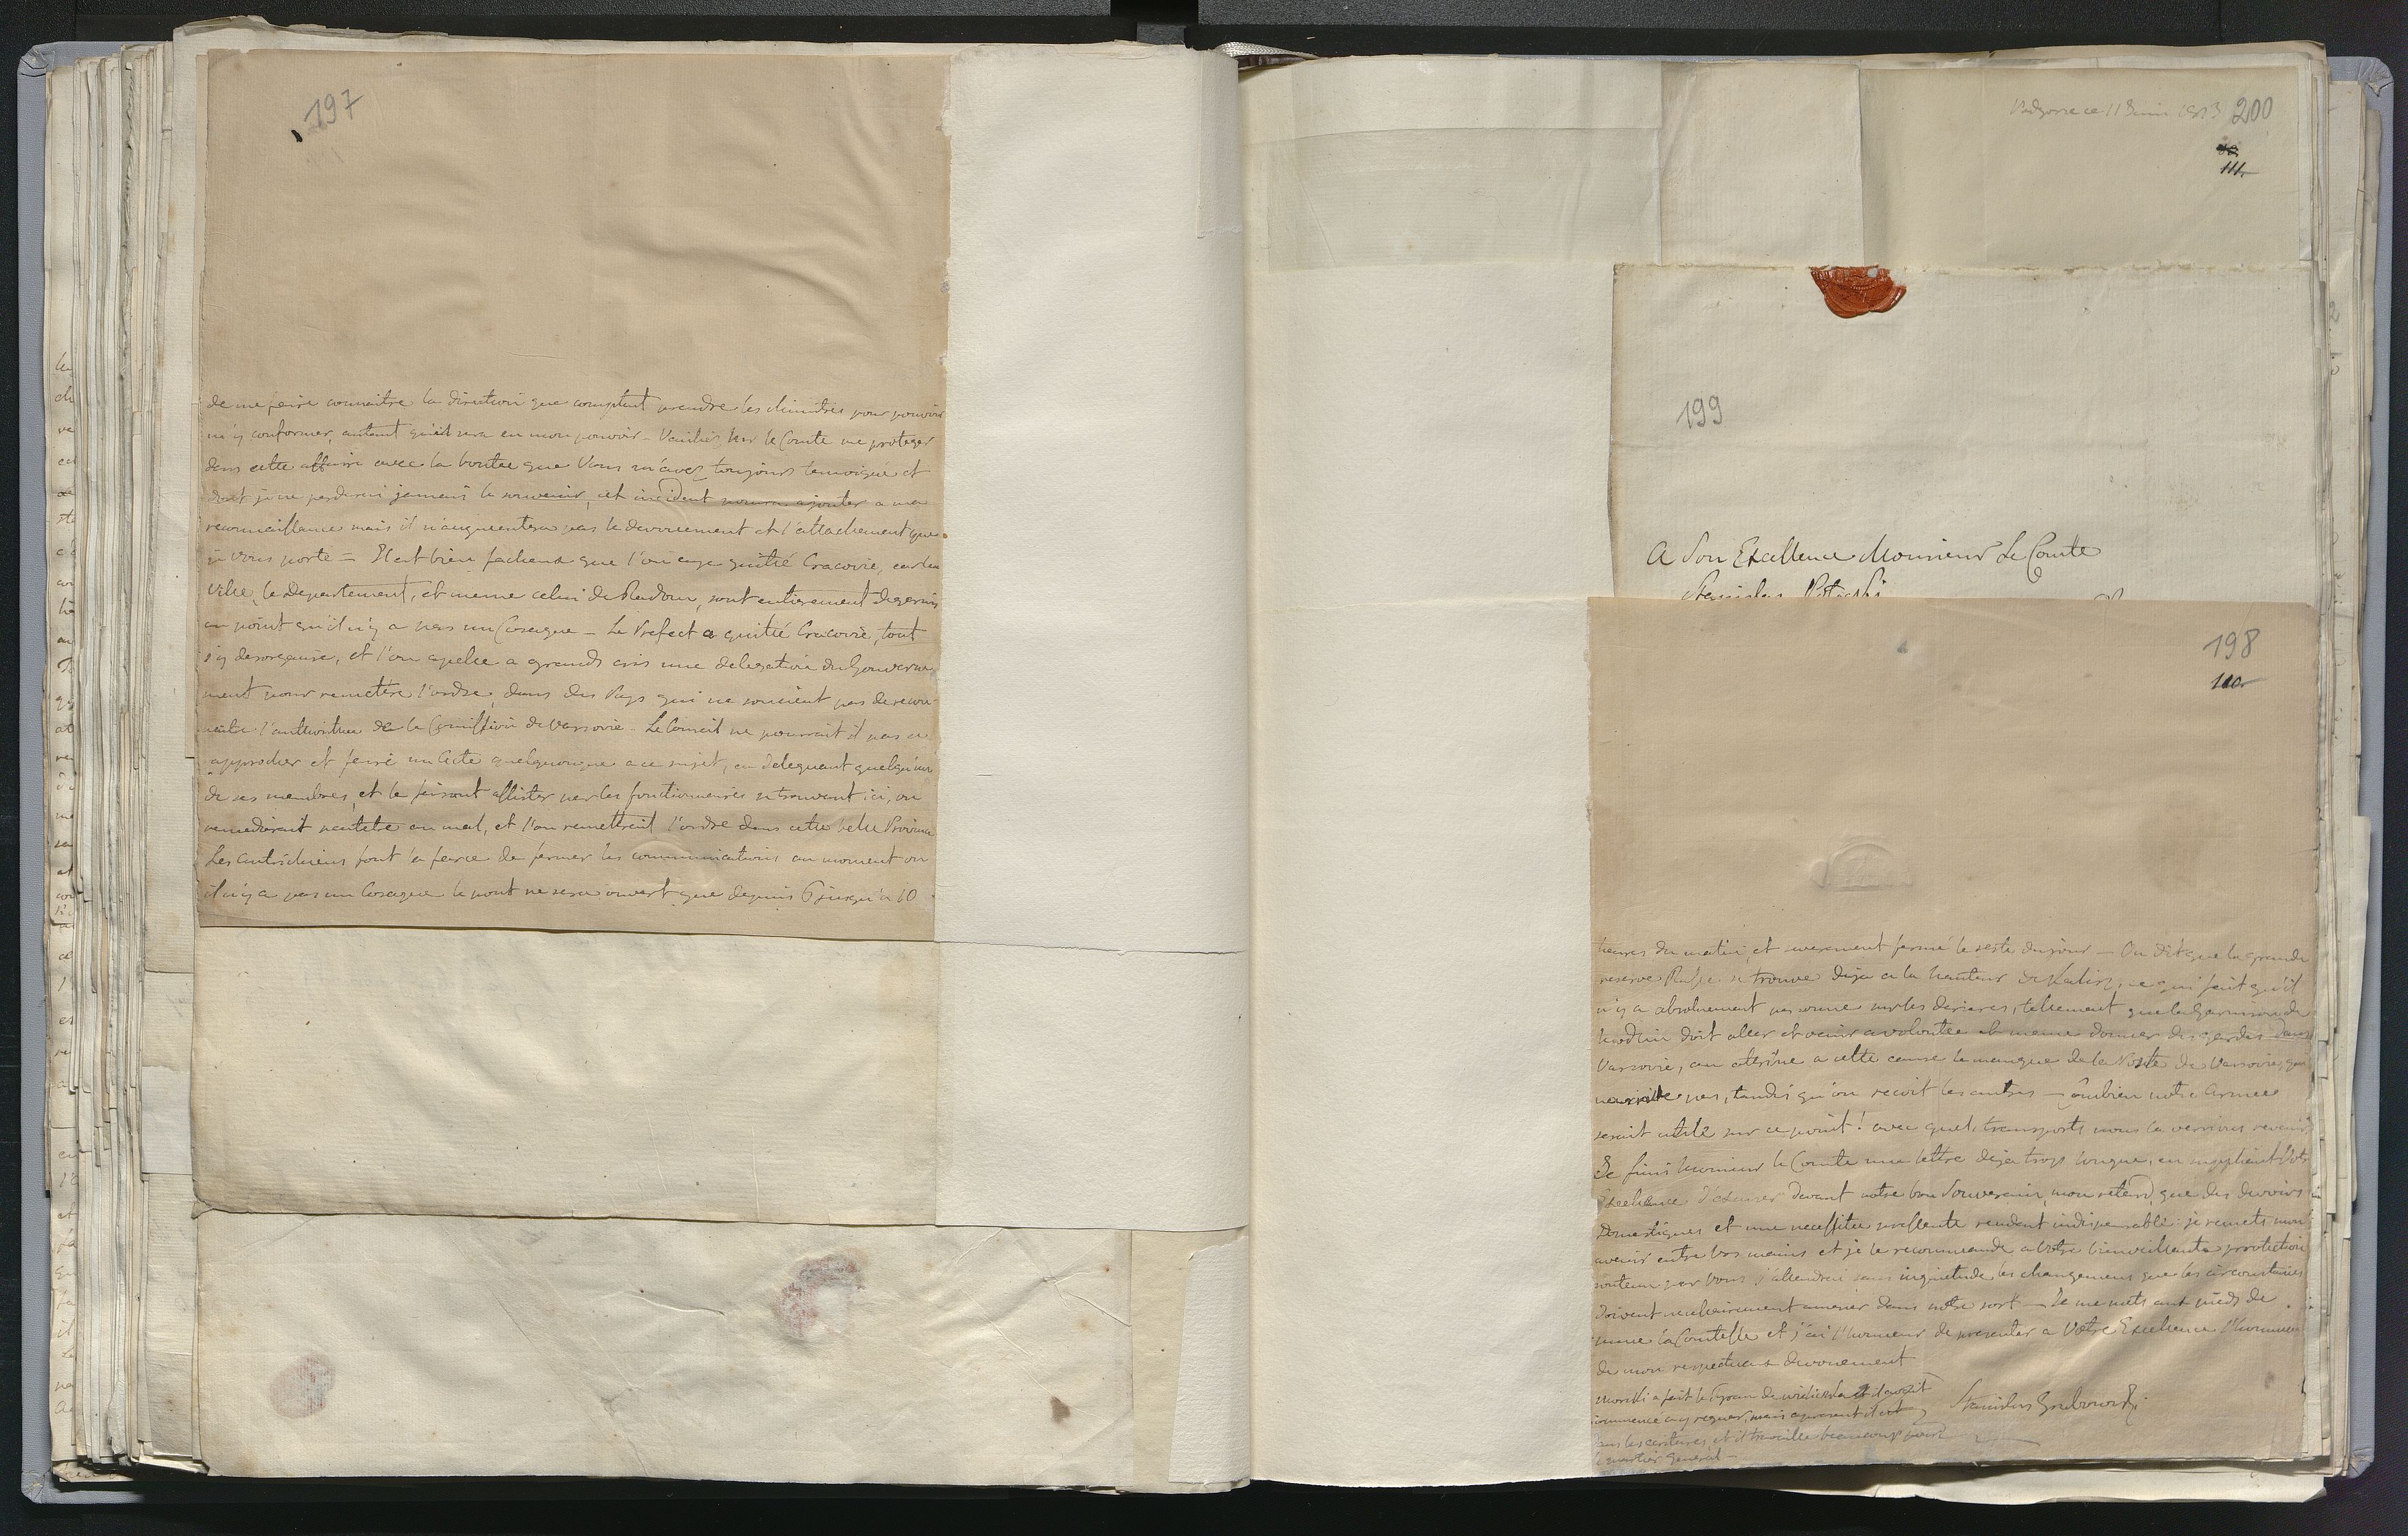 197
de me faire connaitre la direction que comptent prendre les Ministres pour pouvoir
m'y conformer, autant qu'il sera en mon pouvoir – Veuillez le Comte me proteger
dans cette affaire avec la bontee que Vous m'avez toujours temoigné et
dont je ne perderai jamais le souvenir, cet incident pourra ajouter a ma
reconnaissance mais il n'augmentera pas le devouement et l'attachement que
je vous porte = Il est bien facheux que l'on aye quitté Cracovie, car la
Ville, le Departement, et meme celui de Radom, sont entierement degarnis
au point qu'il n'y a pas un Cosaque – Le Prefect a quitté Cracovie, tout
s'y desorganise, et l'on apelle a grands cris une delegation du Gouverne
ment pour remettre l'ordre, dans des Pays qui ne soucient pas de recon-
naitre l'authoritee de la Comission de Varsovie – Le Conseil ne pourrait il pas s'en
approcher et faire un Acte quelquonque a ce sujet, en deleguant quelqu'un
de ses membres, et le faisant assister par les fonctionnaires se trouvant ici, on
remedierait peutetre au mal, et l'on remettrait l'ordre dans cette belle Province
Les Autrichiens font la farce de fermer les communications au moment ou
il n'y a pas un Cosaque le pont ne sera ouvert que depuis 6 jusqu'a 10
ce 11 Juin 1813
200
111.
199
A Son Excellence Monsieur Le Comte
Stanislas Potocki
198
110.
heures du matin, et severement fermé le reste du jour — On dit que la grande
reserve Russe se trouve deja a la hauteur de Kalisz, ce qui fait qu'il
n'y a absoluement personne sur les derieres, tellement que la Garnison de
Modlin doit aller et venir a volontee et meme donner des gardes dans
Varsovie, on atribue a cette cause le manque de la Poste de Varsovie, qui
n'arrive pas, tandis qu'on recoit les autres — Combien notre Armee
serait utile sur ce point! avec quels transports nous la verrions revenir
Je finis Monsieur le Comte une lettre deja trop longue, en supliant Votre
Excellence d'excuser devant notre bon Souverain, mon retard, que des devoirs
Domestiques et une necessitee pressante rendent indispensable: je remets mon
avenir entre Vos mains et je le recommande a Votre bienveillante protection
soutenu par Vous j'attendrai sans inquietude les changemens que les circonstances
doivent necessairement amener dans notre sort — Je me mets aux pieds de
Mme la Comtesse et j'ai l'honneur de presenter a Votre Excellence l'hommage
de mon respectueux devouement
Stanislas Grabowski
a fait le Tyran de Wieliczka et il avait
commencé a y regner, mais apresent il est
dans les ecritures, et il travaille beaucoup pour
le quartier General —